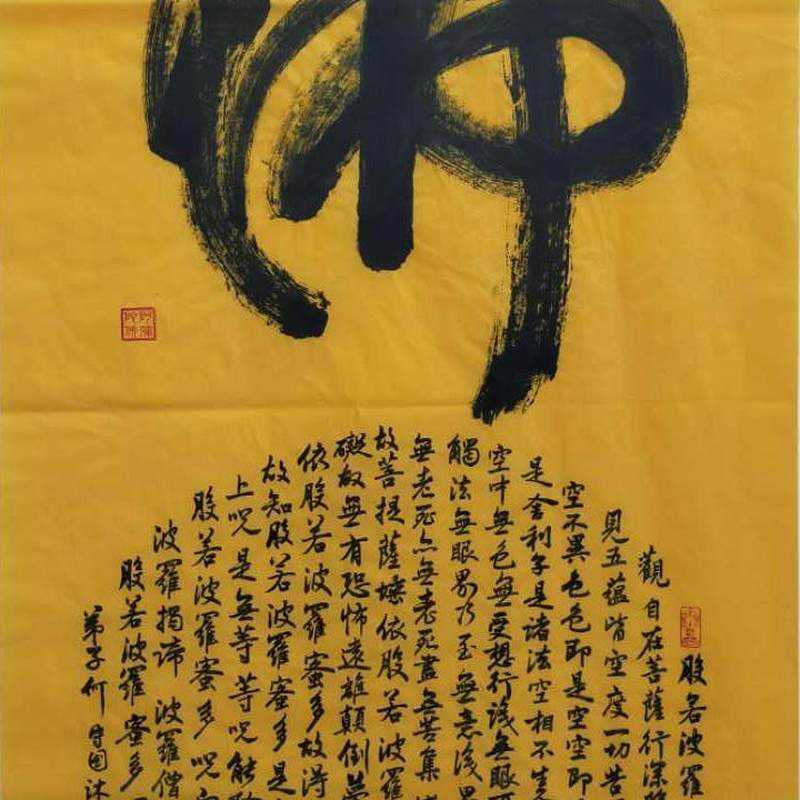 佛
般若波羅
觀自在菩薩行深
見五蘊皆空度一切苦
空不異色色即是空空即
是舍利子是諸法空相不生
空中無色無受想行識無眼
觸法無眼界乃至無意識界
無老死亦無老死盡無苦集
故菩提薩埵依般若波羅
礙故無有恐怖遠離顛倒夢
依般若波羅蜜多故得
故知般若波羅蜜多是
上呪是無等等呪能除
般若波羅蜜多呪
波羅揭諦 波羅僧
般若波羅蜜多
弟子何 国沐